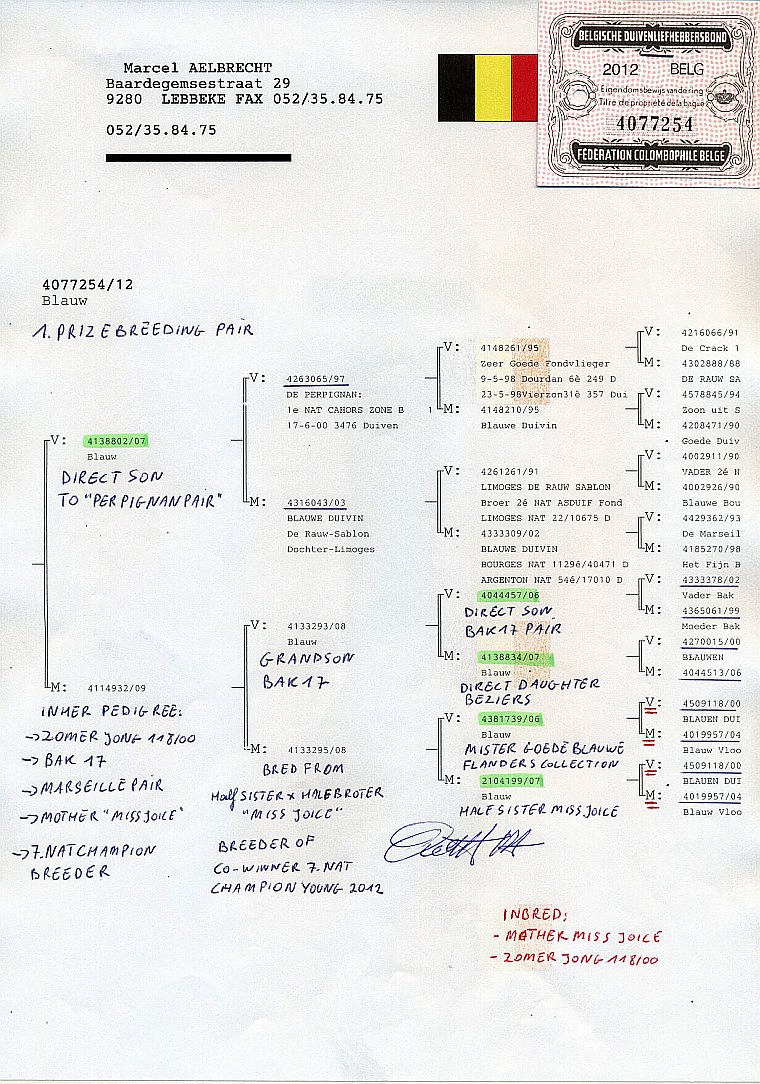 Marcel AELBRECHT
Baardegemsestraat 29
9280 LEBBEKE FAX 052/35.84.75
052/35.84.75
BELGISCHE DUIVENLIEFHEBBERSBOND
2012 BELG
Eigendomsbewijs van de ring
Titre de propriété de la bague
4077254
FEDERATION COLOMBOPHILE BELGE
4077254/12
Blauw
1. PRIZEBREEDING PAIR
V: 4138802/07
Blauw
DIRECT SON
TO "PERPIGNANPAIR"
M: 4114932/09
INHER PEDIGREE:
→ZOMER JONG 118/00
→ BAK 17
→MARSEILLE PAIR
→MOTHER "MISS JOICE"
→7.NATCHAMPION
BREEDER
V: 4263065/97
DE PERPIGNAN:
1e NAT CAHORS ZONE B 1
17-6-00 3476 Duiven
M: 4316043/03
BLAUWE DUIVIN
De Rauw-Sablon
Dochter-Limoges
V: 4133293/08
Blauw
GRANDSON
BAK 17
M: 4133295/08
BRED FROM
Half SISTER x HALFBROTER
"MISS JOICE"
BREEDER OF
CO-WINNER 7.NAT
CHAMPION YOUNG 2012
V: 4148261/95
Zeer Goede Fondvlieger
9-5-98 Dourdan 6è 249 D
23-5-98Vierzon31è 357 Dui
M: 4148210/95
Blauwe Duivin
V: 4261261/91
LIMOGES DE RAUW SABLON
Broer 2é NAT ASDUIF Fond
LIMOGES NAT 22/10675 D
M: 4333309/02
BLAUWE DUIVIN
BOURGES NAT 1129é/40471 D
ARGENTON NAT 54é/17010 D
V: 4044457/06
DIRECT SON
BAK 17 PAIR
M: 4138834/07
Blauw
DIRECT DAUGHTER
BEZIERS
V: 4381739/06
Blauw
MISTER GOEDE BLAUWE
FLANDERS COLLECTION
M: 2104199/07
Blauw
HALF SISTER MISS JOICE
V: 4216066/91
De Crack 1
M: 4302888/88
DE RAUW SA
V: 4578845/94
Zoon uit S
M: 4208471/90
Goede Duiv
V: 4002911/90
VADER 2é N
M: 4002926/90
Blauwe Bou
V: 4429362/93
De Marseil
M: 4185270/98
Het Fijn B
V: 4333378/02
Vader Bak
M: 4365061/99
Moeder Bak
V: 4270015/00
BLAUWEN
M: 4044513/06
V: 4509118/00
BLAUEN DUI
M: 4019957/04
Blauw Vloo
V: 4509118/00
BLAUEN DUI
M: 4019957/04
Blauw Vloo
INBRED:
- MATHER MISS JOICE
- ZOMER JONG 118/00